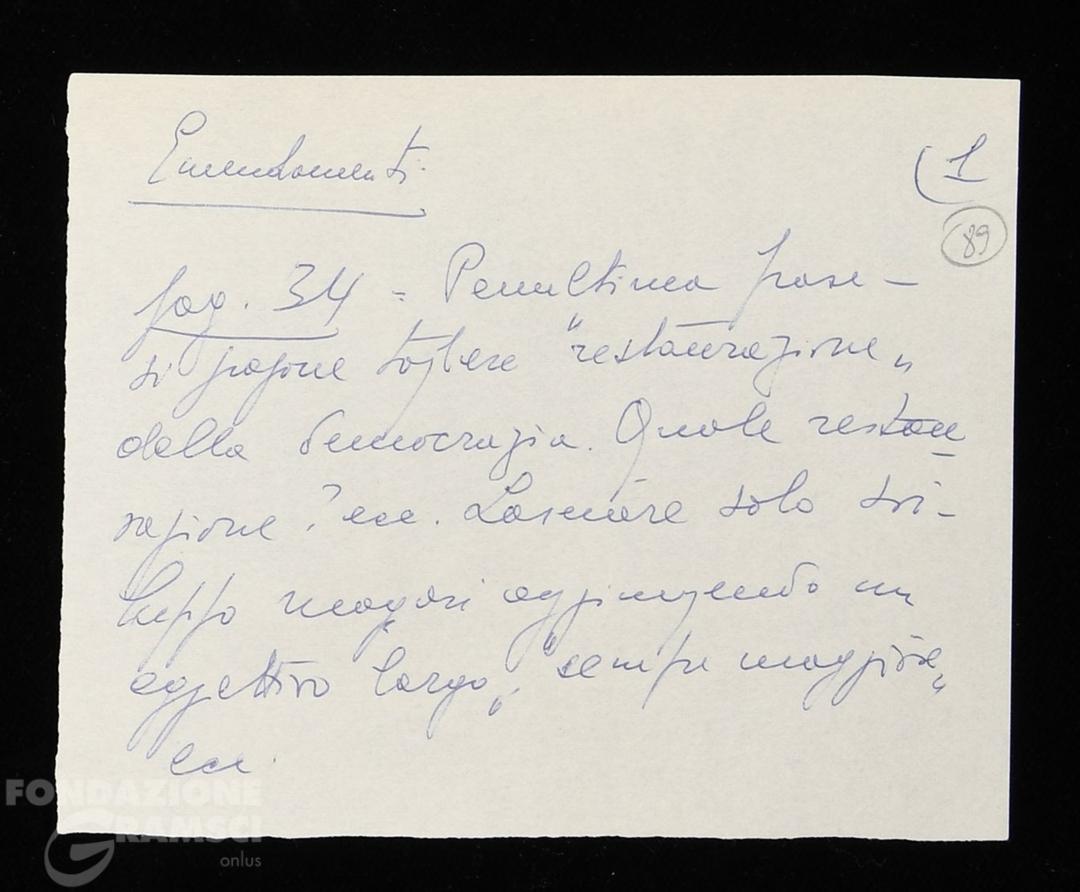 Emendamenti.
(1
89
pag. 34 = Penultima frase –
si propone togliere "restaurazione„
della democrazia. Quale restau
razione? ecc. Lasciare solo svi-
luppo magari aggiungendo un
aggettivo "largo„, "sempre maggiore„
ecc.
FONDAZIONE
GRAMSCI
onlus